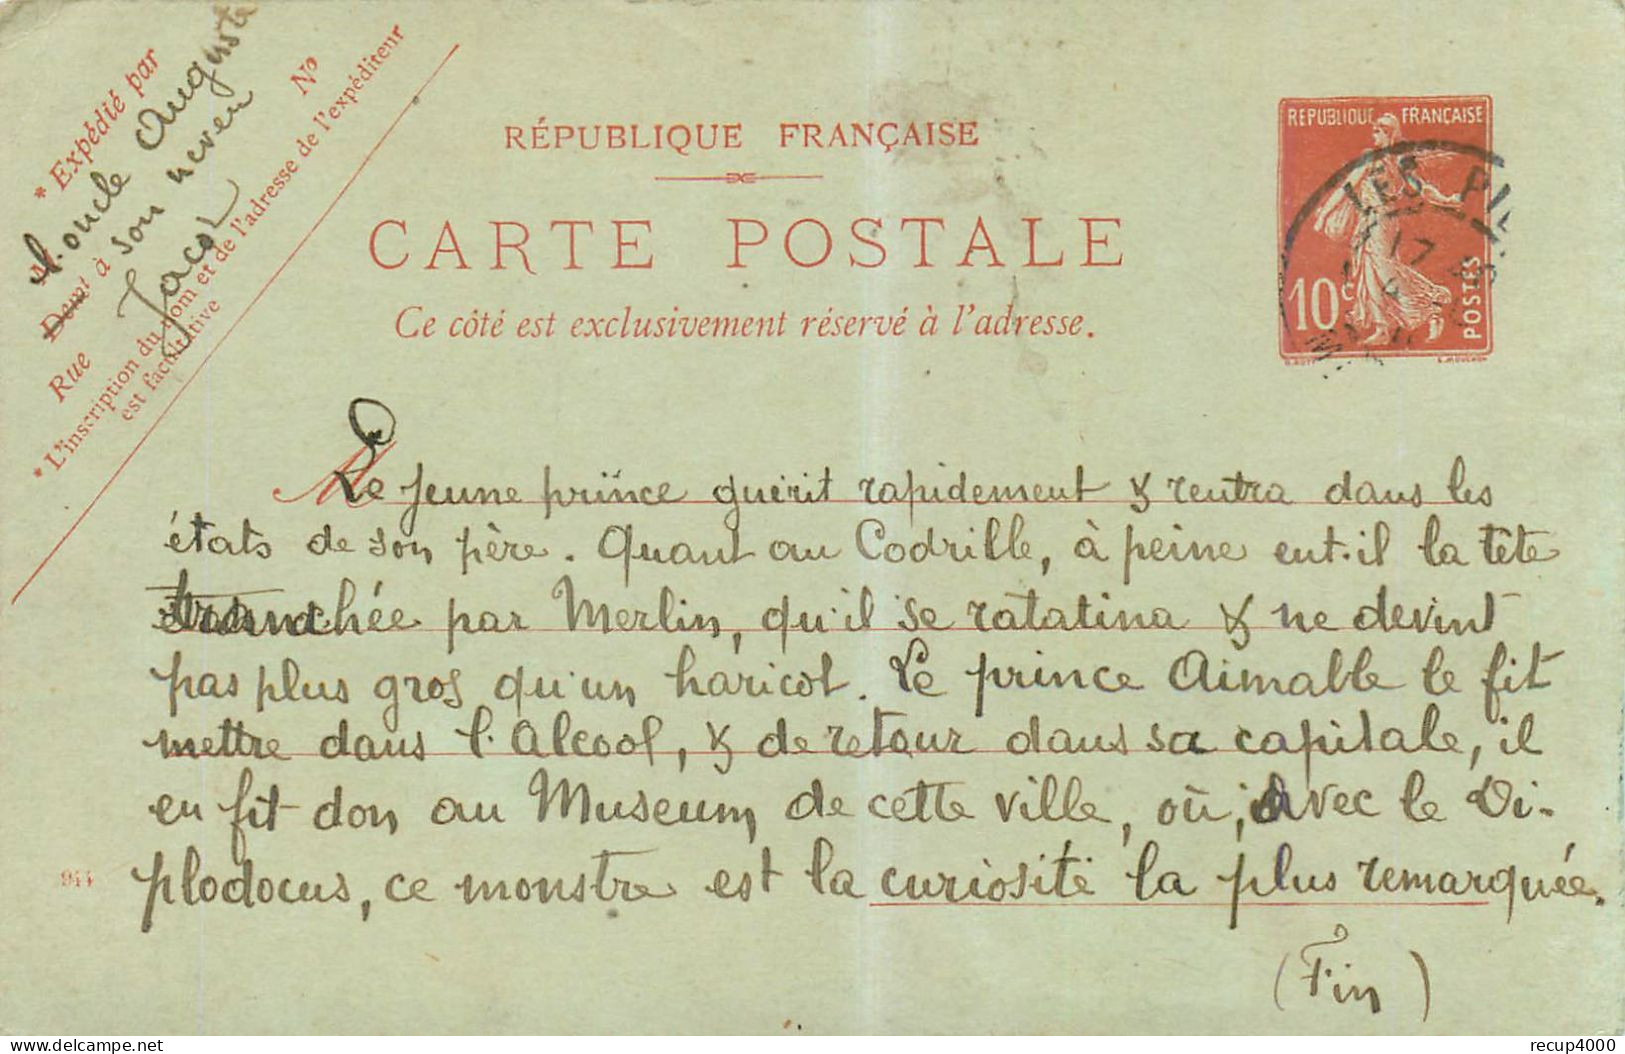 * Expédié par
L'oncle Auguste
Demt à son neveu
Jacot
Rue
No
* L'inscription du nom et de l'adresse de l'expéditeur
est facultative
RÉPUBLIQUE FRANÇAISE
CARTE POSTALE
Ce côté est exclusivement réservé à l'adresse.
REPUBLIQUE FRANÇAISE
10c
POSTES
LES PI
17
Le jeune prince guérit rapidement & rentra dans les
états de son père. Quant au Codrille, à peine eut-il la tête
tranchée par Merlin, qu'il se ratatina & ne devint
pas plus gros qu'un haricot. Le prince Aimable le fit
mettre dans l'Alcool, & de retour dans sa capitale, il
en fit don au Museum de cette ville, où, avec le Di-
plodocus, ce monstre est la curiosité la plus remarquée.
(Fin)
944
delcampe.net
recup4000